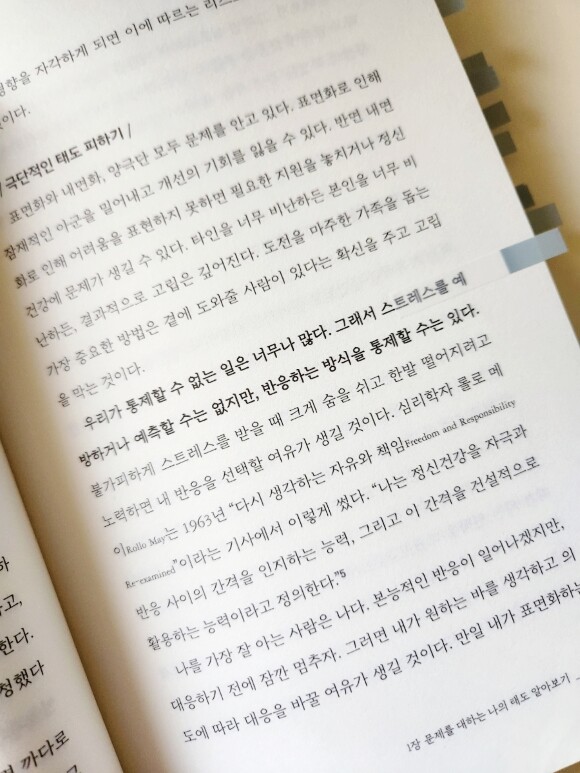 향을 자각하게 되면 이에 따르는 리스
이다.
/ 극단적인 태도 피하기 /
표면화와 내면화, 양극단 모두 문제를 안고 있다. 표면화로 인해
잠재적인 아군을 밀어내고 개선의 기회를 잃을 수 있다. 반면 내면
화로 인해 어려움을 표현하지 못하면 필요한 지원을 놓치거나 정신
건강에 문제가 생길 수 있다. 타인을 너무 비난하든 본인을 너무 비
난하든, 결과적으로 고립은 깊어진다. 도전을 마주한 가족을 돕는
가장 중요한 방법은 곁에 도와줄 사람이 있다는 확신을 주고 고립
을 막는 것이다.
우리가 통제할 수 없는 일은 너무나 많다. 그래서 스트레스를 예
방하거나 예측할 수는 없지만, 반응하는 방식을 통제할 수는 있다.
불가피하게 스트레스를 받을 때 크게 숨을 쉬고 한발 떨어지려고
노력하면 내 반응을 선택할 여유가 생길 것이다. 심리학자 롤로 메
이Rollo May는 1963년 “다시 생각하는 자유와 책임Freedom and Responsibility
Re-examined”이라는 기사에서 이렇게 썼다. “나는 정신건강을 자극과
반응 사이의 간격을 인지하는 능력, 그리고 이 간격을 건설적으로
활용하는 능력이라고 정의한다.”5
나를 가장 잘 아는 사람은 나다. 본능적인 반응이 일어나겠지만,
대응하기 전에 잠깐 멈추자. 그러면 내가 원하는 바를 생각하고 의
도에 따라 대응을 바꿀 여유가 생길 것이다. 만일 내가 표면화하는
1장 문제를 대하는 나의 태도 알아보기
고,
한다.
청했다
까다로